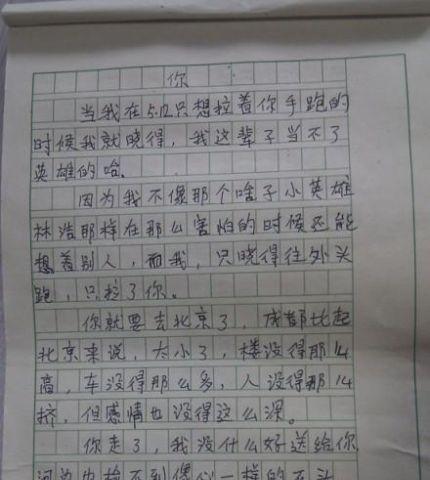 你
当我在5.12只想拉着你手跑的
时候我就晓得，我这辈子当不了
英雄的哈。
因为我不像那个啥子小英雄
林浩那样在那么害怕的时候还能
想着别人，而我，只晓得往外头
跑，只拉了你。
你就要去北京了，成都比起
北京来说，太小了，楼没得那么
高，车没得那么多，人没得那么
挤，但感情也没得这么深。
你走了，我没什么好送给你
河边也捡不到像心一样的石头